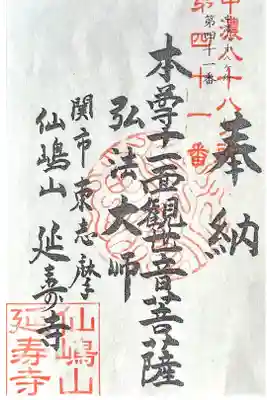 中濃八十八ヶ所
第四十一番
奉納
本尊十一面観世音菩薩
弘法大師
関市東志摩
仙嶋山 延寿寺
仙嶋山
延寿寺